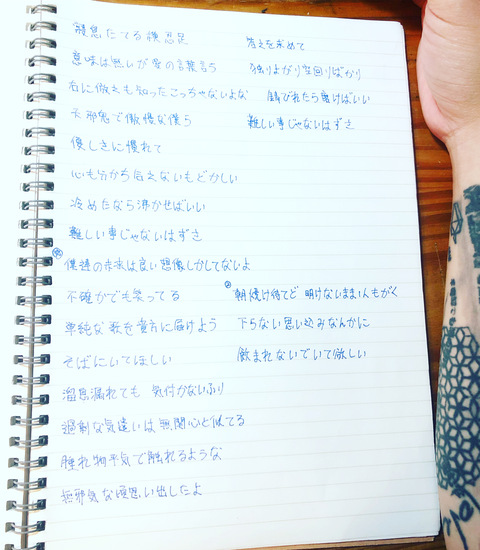 寝息たてる横忍足
意味は無いが愛の言葉言う
右に倣えも知ったこっちゃないよな
天邪鬼で傲慢な僕ら
優しさに慣れて
心も分から合えないもどかしい
冷めたなら沸かせばいい
難しい事じゃないはずさ
僕達の未来は良い想像しかしてないよ
不確かでも笑ってる
単純な歌を貴方に届けよう
そばにいてほしい
溜息漏れても 気付かないふり
過剰な気遣いは無関心と似てる
腫れ物平気で触れるような
無邪気な頃思い出したよ
答えを求めて
独りよがり空回りばかり
錆びれたら磨けばいい
難しい事じゃないはずさ
朝焼け待てど 明けないまま1人もがく
下らない思い込みなんかに
飲まれないでいて欲しい